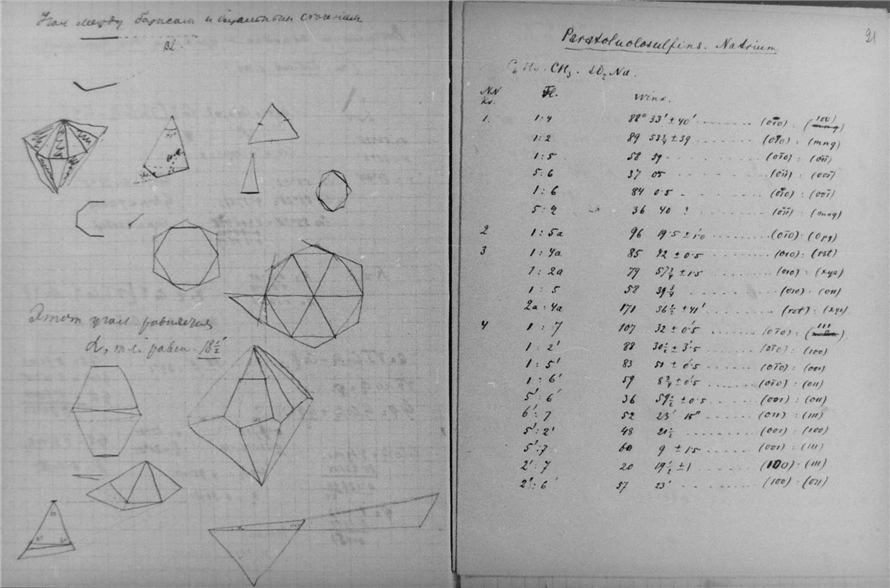 Угол между
α.
Этот угол равняется
α, т.е. равен 18 1/2'
21
Paratoluolosulfins. Natrium
C6H4. CH3. SO2Na.
NN Kr. Fl. Wink.
1. 1:4 88° 33' ± 40' (010̄) : (100)
1:2 89 53 1/2 ± 39 (010̄) : (mnq)
1:5 58 39 (010̄) : (011̄)
5:6 37 05 (011̄) : (001̄)
1:6 84 0.5 (010̄) : (001̄)
5:2 36 40 ? (011̄) : (mnq)
2 1:5a 96 19.5 ± 1'.0 (010̄) : (opq)
3 1:4a 85 42 ± 0.5 (010) : (rst)
1:2a 79 57 1/2 ± 1.5 (010) : (xyz)
1:5 58 39 1/2 (010) : (011)
2a:4a 171 36 1/2 ± 41' (rst) : (xyz)
4 1:7 107 32 ± 0'.5 (010̄) : (111)
1:2' 88 30 1/2 ± 3'.5 (010̄) : (100)
1:5' 83 51 ± 0'.5 (010̄) : (001)
1:6' 59 8 3/4 ± 0'.5 (010̄) : (011)
5':6' 36 59 1/2 ± 0'.5 (001) : (011)
6':7 52 23' 15" (011) : (111)
5':2' 48 21 1/2 (001) : (100)
5':7 60 9 ± 1.5 (001) : (111)
2':7 20 19 1/2 ± 1 (100) : (111)
2':6' 57 23' (100) : (011)